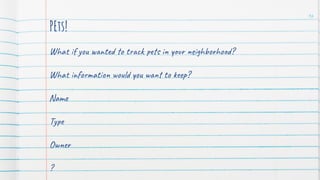 PETS!
What if you wanted to track pets in your neighborhood?
What information would you want to keep?
Name
Type
Owner
?